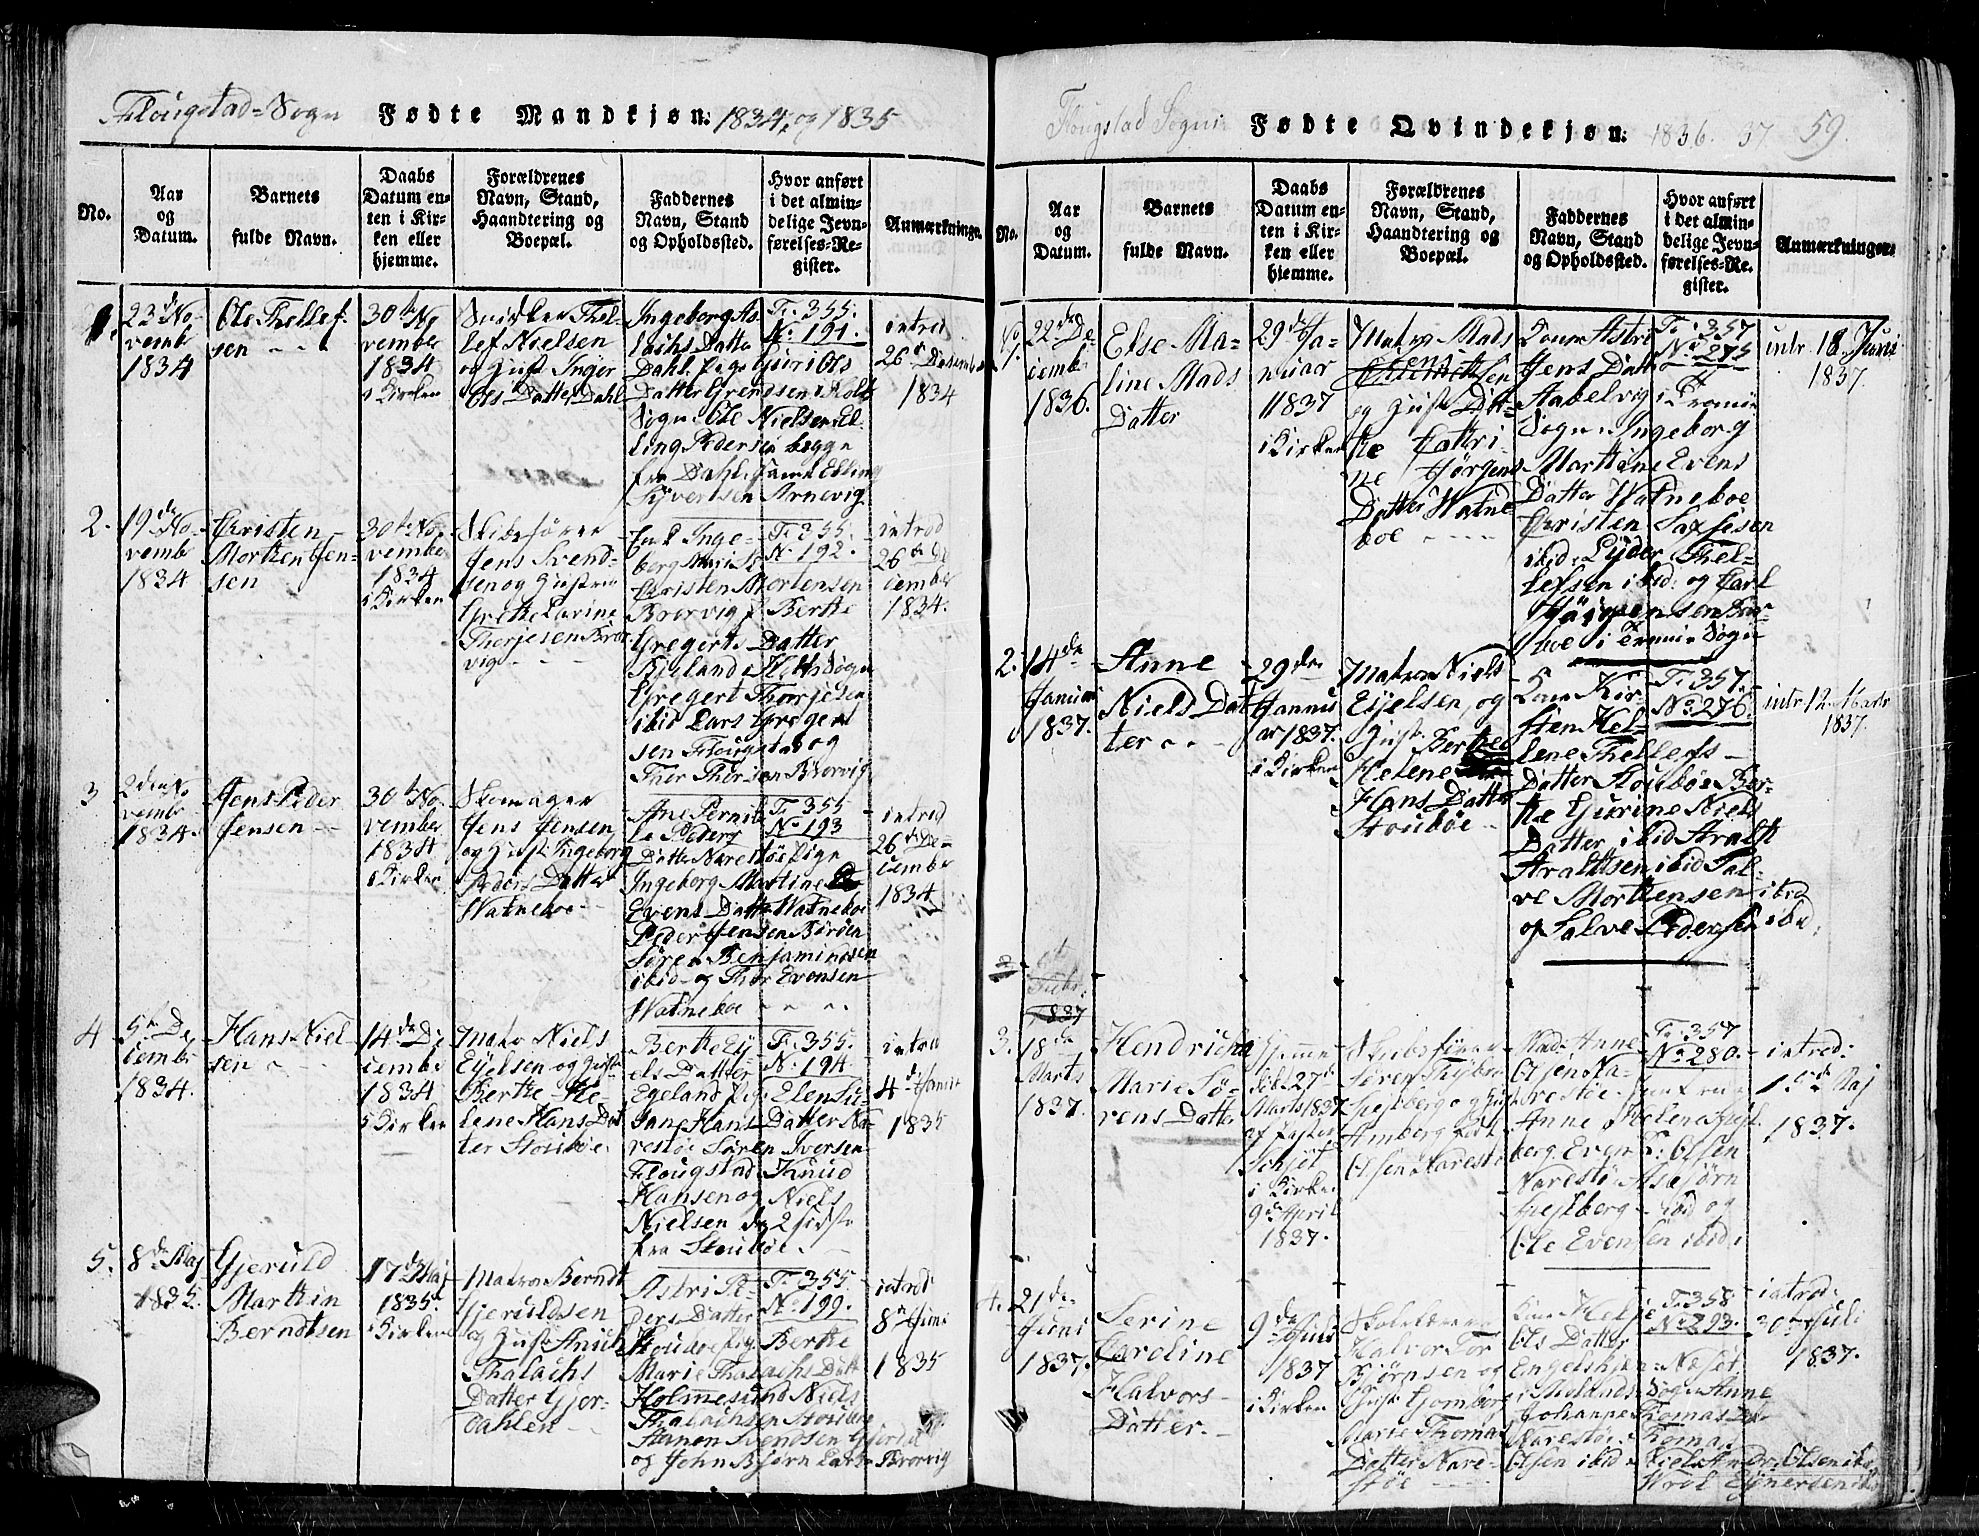 Flougstad-Sogn Fødte Mandkjøn. 1834, og 1835
No.
Aar
og
Datum.
Barnets
fulde Navn.
Daabs
Datum en-
ten i Kir-
ken eller
hjemme.
Forældrenes
Navn, Stand,
Haandtering og
Boepæl.
Faddernes
Navn, Stand
og Opholdssted.
Hvor anført
i det almin-
delige Jevn-
førelses-Re-
gister.
Anmærkninger
1.
23de No-
vembr
1834
Ole Thellef-
sen
30te No-
vember
1834
i Kirken
Thel-
lef Nielsen
og Hust Inger
Ols Datter Dahl
Ingeborg As-
lachs Datter
Dahl. Pige Guri Ols
Datter Grendsen i Holt
Sogn. Ole Nielsen El-
ling Pedersen begge
fra Dahl, samt Elling
Syvertsen Arnevig
F. 355.
No. 191.
introd
26de December
1834
2.
19de No-
vembr
1834
Christen
Morthen Jen-
sen
30te No-
vember
1834
i Kirken
Skibsfører
Jens Svend-
sen og Hustrue
Grethe Larine
Thorjesen Bror-
vig
Inge-
borg Marie
Christen Mortensen
Brorvig, p. Berthe
Gregerts Datter
Kjeland i Holts Sogn
Gregert Thorjesen
ibid Lars Greger-
sen Flougstad og
Thor Thorjesen Brorvig
F. 355.
No. 192.
introd
26de De-
cember
1834.
3
2den No-
vembr
1834.
Jens Peder
Jensen
30te No-
vember
1834
i Kirken
Skomager
Jens Jensen
og Hust. Ingeborg
Peders Datter
Watneboe
Ane Pernil-
le Peders
Datter Narestøe Pige
Ingeborg Martine
Evens Datter Watneboe
Peder Jensen Børøen
Søren Benjaminsen
ibid og Thor Evensen
Watneboe
F. 355
No. 193
introd
26de De-
cember
1834
4
5te De-
cembr
1834.
Hans Niel-
sen
14de De-
cembr
1834
i Kirken
Matr. Niels
Eyelsen og Hust
Berthe He-
lene Hans Dat-
ter Stouboe.
Berthe Ey-
els Datter
Egeland Pig: Elen Su-
sane Hans Datter Na-
restøe Søren Iversen
Flougstad Knud
Hansen og Niels
Nielsen de 2 sidste
fra Skouboe.
F. 355.
No. 194.
introd
4de Januar
1835
5.
8de Maj
1835.
Gjeruld
Marthin
Berndtsen
17de Maj
1835.
i Kirken
Matros Berndt
Gjeruldsen
og Hust Anne
Thalachs
Datter Gjer-
dahlen
Astri Pe-
ders Datter
Skouboe Pig. Berthe
Marie Thalachs Datt
Holmesund Niels
Thalachsen Stouboe
Stenon Svendsen
og John Bjørn Lars- Brorvig
F. 355.
No. 199.
introd
8de Juni
1835
Flougstad Sogn: Fødte Qvindekjøn. 1836. 37. 59.
No.
Aar
og
Datum.
Barnets
fulde Navn.
Daabs
Datum en-
ten i Kir-
ken eller
hjemme.
Forældrenes
Navn, Stand,
Haandtering og
Boepæl.
Faddernes
Navn, Stand
og Opholdssted.
Hvor anført
i det almin-
delige Jevn-
førelses-Re-
gister.
Anmærkninger
No
1.
22de De-
cembr
1836.
Else Ma-
line Mads
Datter
29de Ja-
nuar
1837
i Kirken
Matros Mads
og Hust Dit-
he Cathri-
ne Jørgens
Datter Watne
boe
Kone Astri
Jens Datter
Aabelvig i Tromøe
Sogn. Ingeborg
Marthine Evens
Datter Watneboe
Christen Saxesen
ibid Lyder Thel-
lefsen ibid: og Carl
boe i Tromøe Sogn
F: 357
No 275
intr. 18. Juni
1837.
2.
14de
Januar
1837.
Anne
Niels Dat
ter
29de
Janu-
ar 1837.
i Kirken
Matros Niels
Eyelsen, og
Hust. Berthe
Helene
Hans Datter
Stouboe
Kone Kir-
sten Hel-
lene Thellefs
Datter Stouboe Ber-
the Gurine Niels
Datter, ibid Aralt
Araltsen ibid Sal-
ve Morthensen ibid
og Salve Pedersen ibid.
F. 357
No. 276.
intr 12. Marts
1837.
3
Febr.
1837
3.
18de
Marts
1837.
Hendricha
Marie Sø-
rens Datter
Hjemme-
døb. 27de
Marts 1837
i Kirken
9de April
1837.
Skibsfører
Søren
og Hust
Olsen Narestø
Mad: Anne
Olsen Na-
restøe.
Anne Helene
berg. Even T: Olsen
Narestø Asbjørn
ibid og
Ole Evensen ibid.
F: 357
No. 280.
introd:
Maj
1837.
4.
21de
Juni
1837.
Serine
Caroline
Halvors-
Datter.
9de
Juli
1837
i Kirken
Skolelærer
Halvor Tor
Bjørnsen og
Hust Gomborg
Marie Thomas
Datter Nare-
støe
Kone Helje
Ols Datter
Næset
i Molands Sogn Anne
Johanne Thomas Dat-
Narestøe. Thomas
Olsen ibid. Niels Andr: Olsen ibid
F. 358
No. 293.
introd.
30te Juli
1837.